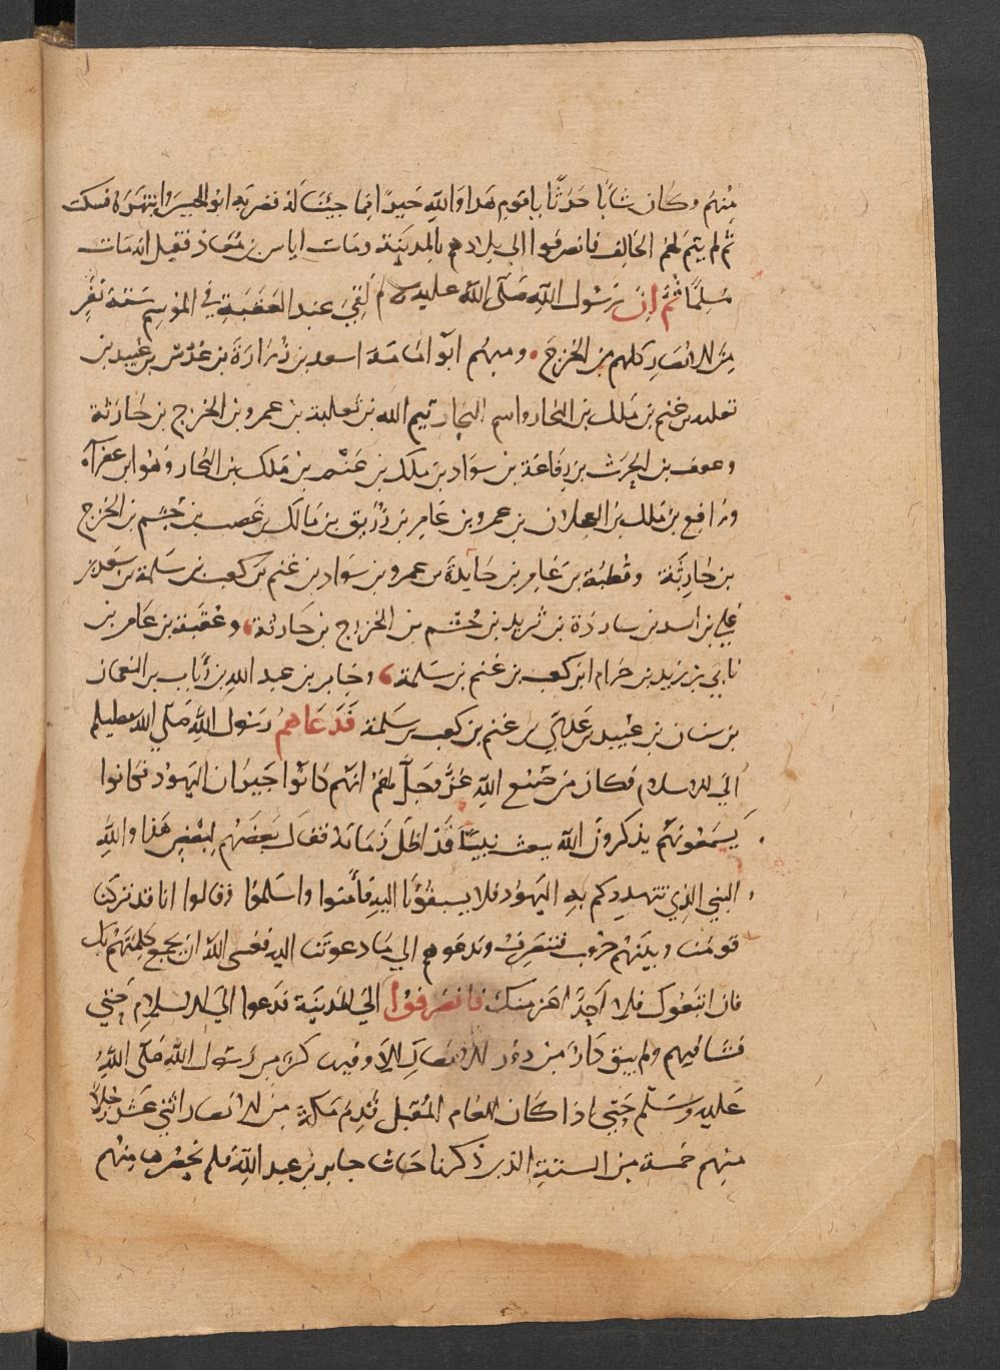 منهم وكان شابا حدثا ياقوم هذا والله خير مما جئنا له فضربه ابو الحيسر وانتهره فسكت
ثم لم يتم لهم الحالف فانصرفوا الي بلادهم بالمدينة ومات اياس بن معاذ فقيل انه مات
مسلما ثم إن رسول الله صلى الله عليه وسلم لقي عند العقبة في الموسم ستة نفر
من الانصار كلهم من الخزرج ومنهم ابو امامة اسعد بن زرارة بن عدس بن عبيد بن
ثعلبه بن غنم بن ملك بن النجار واسم النجار تيم الله بن ثعلبة بن عمرو بن الخزرج بن حارثة
وعوف بن الحرث بن رفاعة بن سواد بن ملك بن غنم بن ملك بن النجار وهو ابن عفرآء
ورافع بن ملك بن العجلان بن عمرو بن عامر بن زريق بن مالك بن غصب بن جشم بن الخزرج
بن حارثة وقطبة بن عامر بن حديدة بن عمرو بن سواد بن غنم بن كعب بن سلمة بن سعد بن
علي بن اسد بن ساردة بن تزيد بن جشم بن الخزرج بن حارثة وعقبة بن عامر بن
نابي بن زيد بن حرام ابن كعب بن غنم بن سلمة وجابر بن عبد الله بن رئاب بن النعمان
بن سنان بن عبيد بن عدي بن غنم بن كعب بن سلمة فدعاهم رسول الله صلى الله عليه وسلم
الي الاسلام فكان من صنع الله عز وجل لهم انهم كانوا جيران اليهود فكانوا
يسمعونهم يذكرون الله يبعث نبيا قد اظل زمانه فقال بعضهم لبعض هذا والله
النبي الذي تتهددكم به اليهود فلا يسبقونا اليه فأمنوا واسلموا وقالوا انا قد تركنا
قومنا وبينهم حروب فننصرف وندعوهم الي ما دعوتنا اليه فعسى الله ان يجمع كلمتهم بك
فان اتبعوك فلا احد اعز منك فانصرفوا الي المدينة فدعوا الي الاسلام حتي
فشا فيهم ولم يبق دار من دور الانصار الا وفيها ذكر من رسول الله صلى الله
عليه وسلم حتي اذا كان العام المقبل قدم مكة من الانصار اثني عشر رجلا
منهم خمسة من الستة الذين ذكرنا حاشا جابر بن عبد الله فلم يحضرها منهم